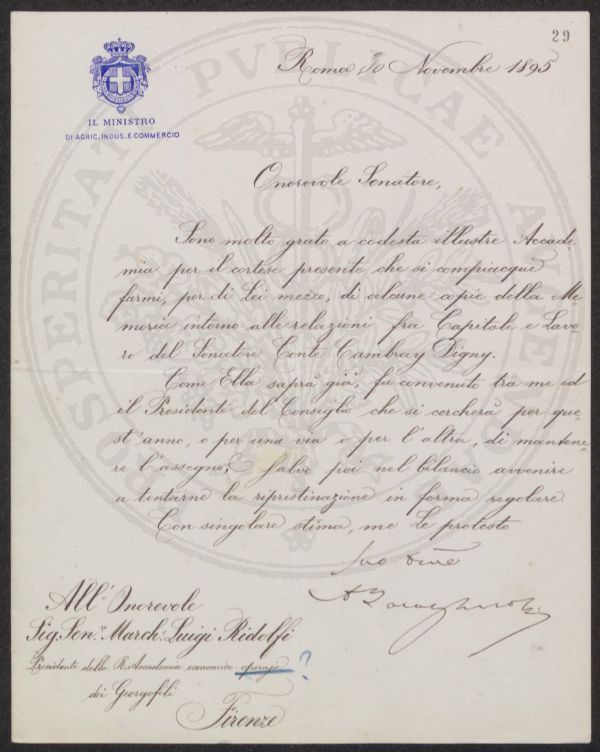 29
Roma 30 Novembre 1895
IL MINISTRO
DI AGRIC. INDUS. E COMMERCIO
Onorevole Senatore,
Sono molto grato a codesta illustre Accade
mia per il cortese presente che si compiacque
farmi, per di Lei mezzo, di alcune copie della Me
moria intorno alle relazioni fra Capitale e Lavo
ro del Senatore Conte Cambray Digny.
Come Ella saprà già, fu convenuto tra me ed
il Presidente del Consiglio che si cercherà per que
st'anno, o per una via o per l'altra, di mantene
re l'assegno; salvo poi nel bilancio avvenire
a tentarne la ripristinazione in forma regolare.
Con singolare stima, me Le protesto
Suo
All'Onorevole
Sig. Sen.re March: Luigi Ridolfi
Presidente della R. Accademia economico-agraria ?
dei Georgofili
Firenze